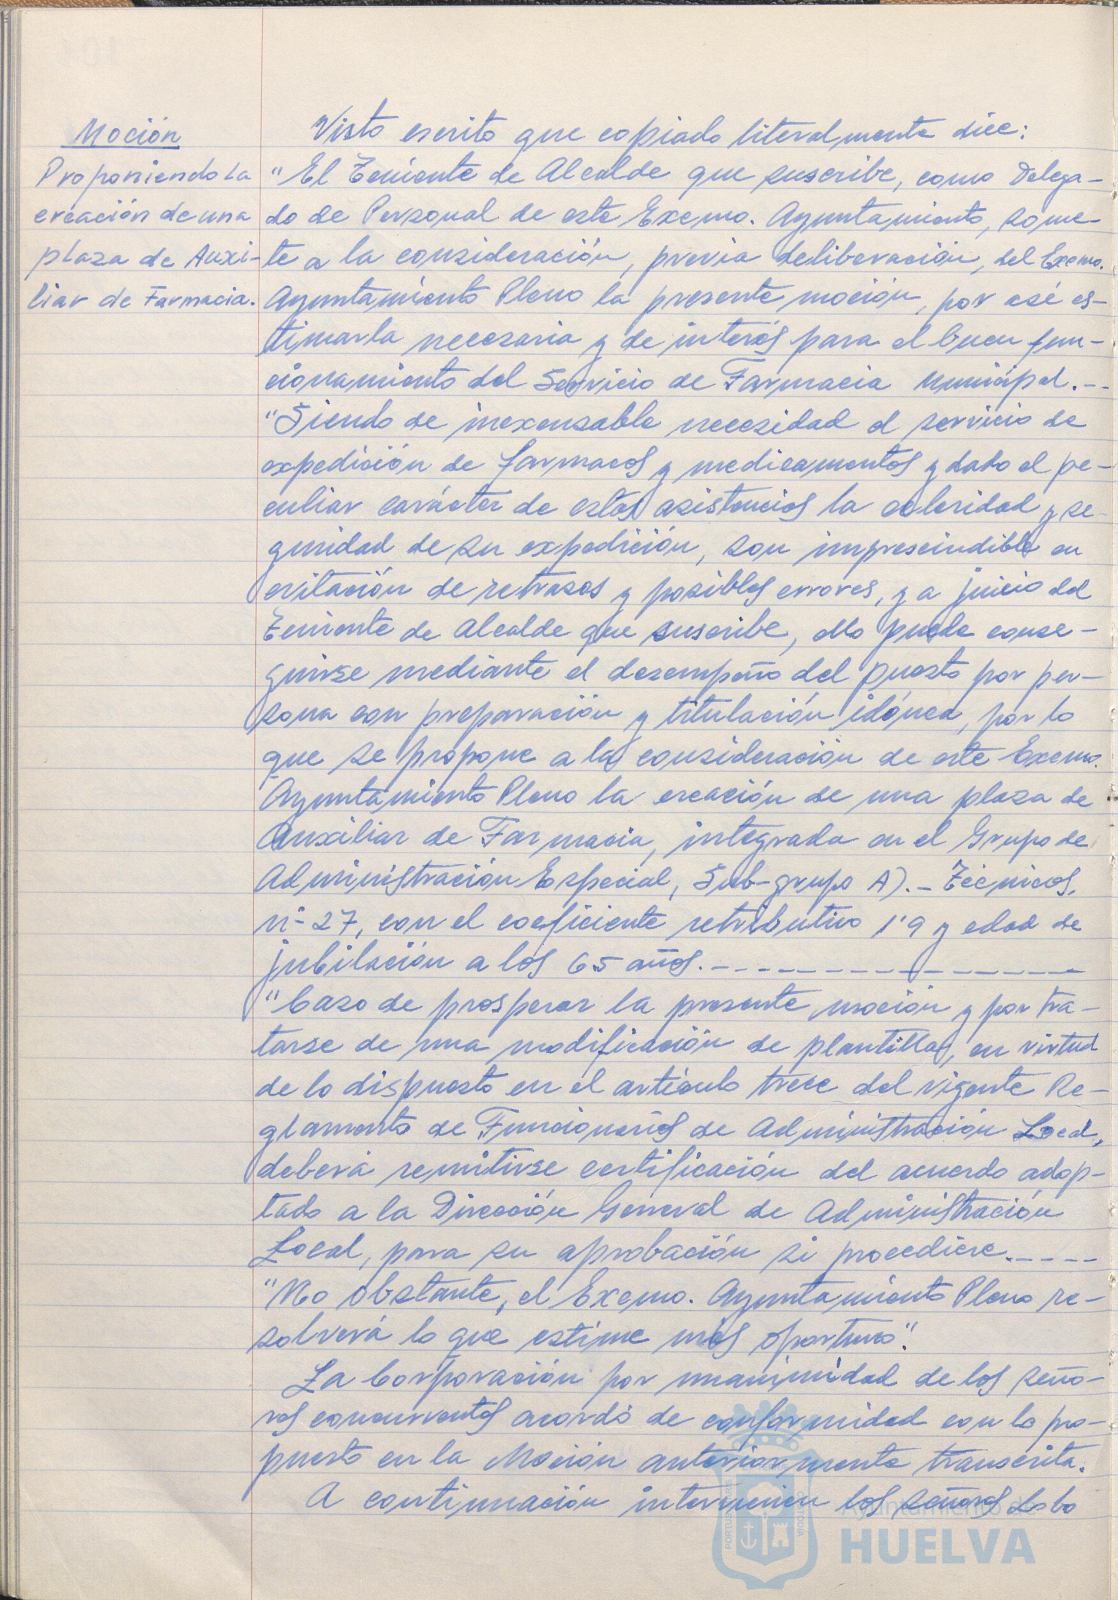 Moción
Proponiendo la
creación de una
plaza de Auxi-
liar de Farmacia.
Visto escrito que copiado literalmente dice:
"El Teniente de Alcalde que suscribe, como Delega-
do de Personal de este Excmo. Ayuntamiento, some-
te a la consideración, previa deliberación, del Excmo.
Ayuntamiento Pleno la presente moción, por así es-
timarla necesaria y de interés para el buen fun-
cionamiento del Servicio de Farmacia Municipal.--
"Siendo de inexcusable necesidad el servicio de
expedición de farmacos y medicamentos y dado el pe-
culiar carácter de estas asistencias la celeridad y se-
guridad de su expedición, son imprescindible en
evitación de retrasos y posibles errores, y a juicio del
Teniente de Alcalde que suscribe, ello puede conse-
guirse mediante el desempeño del puesto por per-
sona con preparación y titulación idónea, por lo
que se propone a la consideración de este Excmo.
Ayuntamiento Pleno la creación de una plaza de
Auxiliar de Farmacia, integrada en el Grupo de
Administración Especial, Sub-grupo A).- Técnicos,
nº 27, con el coeficiente retributivo 1'9 y edad de
jubilación a los 65 años.---------------
"Caso de prosperar la presente moción y por tra-
tarse de una modificación de plantillas, en virtud
de lo dispuesto en el artículo trece del vigente Re-
glamento de Funcionarios de Administración Local,
deberá remitirse certificación del acuerdo adop-
tado a la Dirección General de Administración
Local, para su aprobación si procediere.----
"No obstante, el Excmo. Ayuntamiento Pleno re-
solverá lo que estime más oportuno".
La Corporación por unanimidad de los seño-
res concurrentes acordó de conformidad con lo pro-
puesto en la Moción anteriormente transcrita.
A continuación intervienen los señores Lobo
Ayuntamiento de
HUELVA